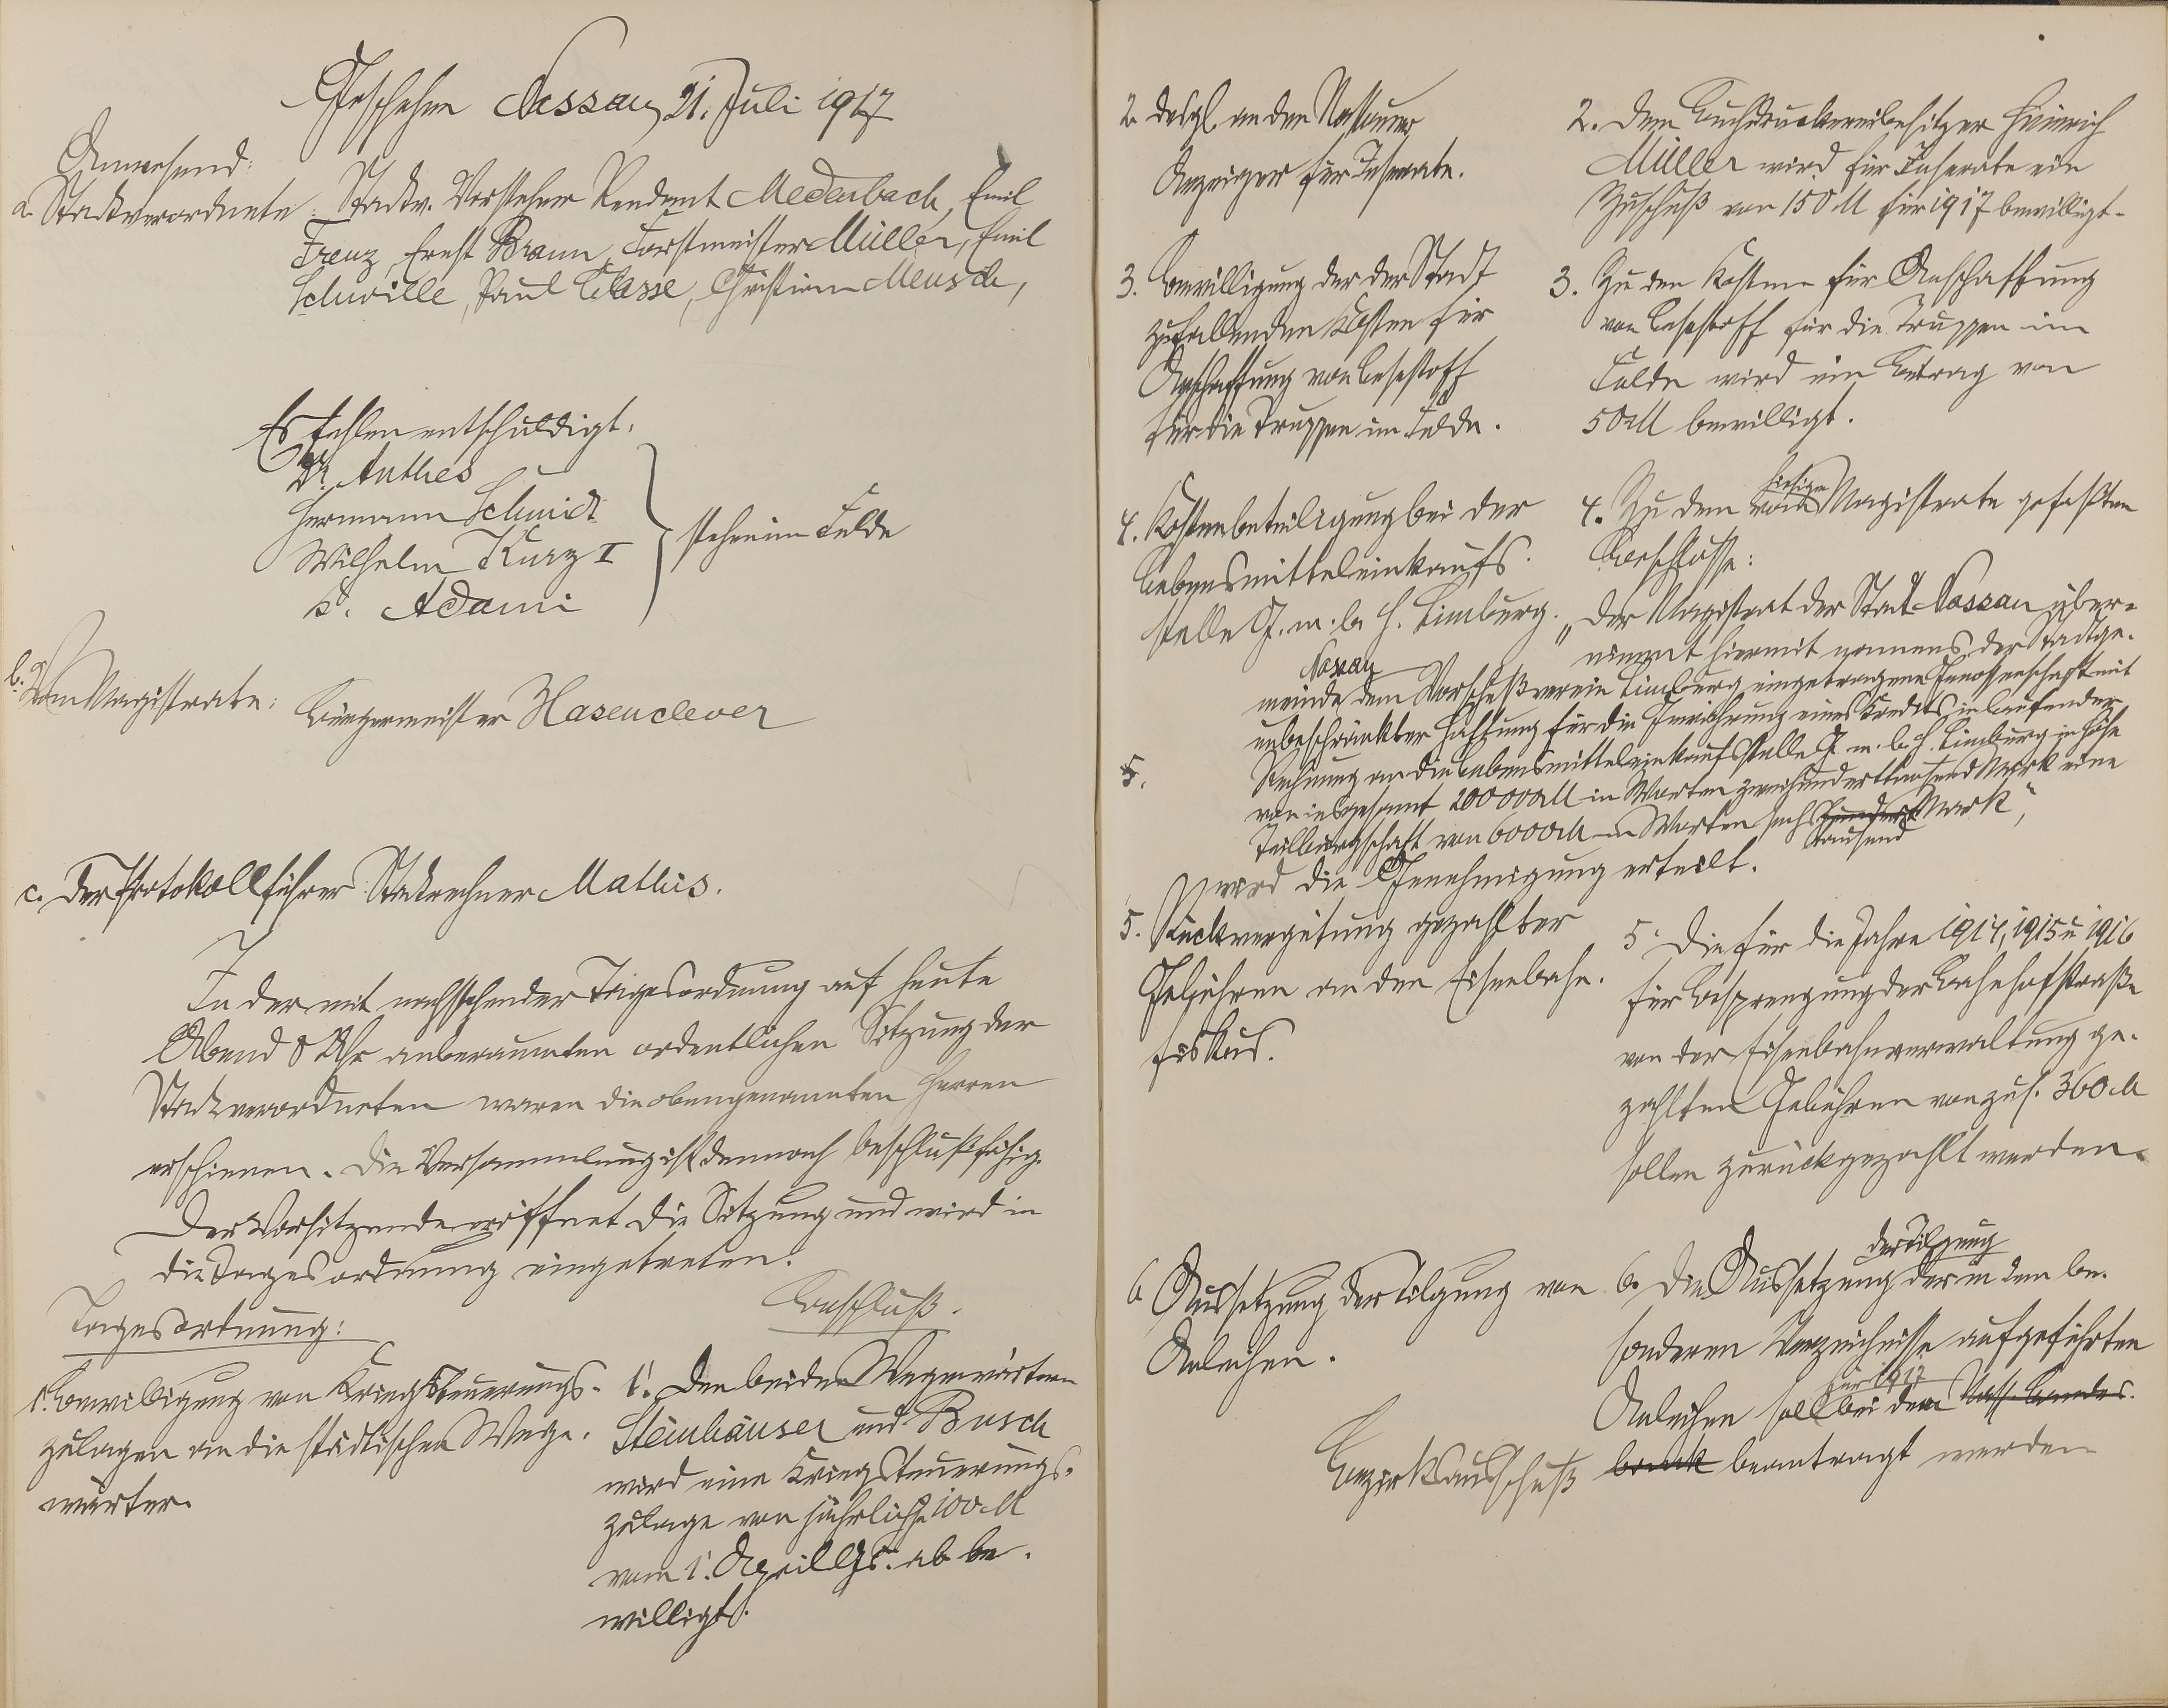 Geschehen Nassau, 21. Juli 1917
Anwesend:
a. Stadtverordnete: Stadtv. Vorsteher Rendant Medenbach, Emil
Frenz, Ernst Braun, Forstmeister Müller, Emil
Schwille, Paul Classe, Christian Meusch,
Es fehlen entschuldigt:
Dr. Anthes
Hermann Schmidt
Wilhelm Kurz I
H. Adami
stehen im Felde
b. Vom Magistrate: Bürgermeister Hasenclever
c. Der Protokollführer: Stadtrechner Mathis.
In der mit nachstehender Tagesordnung auf heute
Abend 8 Uhr anberaumten ordentlichen Sitzung der
Stadtverordneten waren die obengenannten Herren
erschienen. Die Versammlung ist demnach beschlußfähig.
Der Vorsitzende eröffnet die Sitzung und wird in
die Tagesordnung eingetreten.
Tagesordnung:
1. Bewilligung von Kriegsteuerungs-
zulagen an die städtischen Wege-
wärter.
Beschluß.
1. Den beiden Wegewärtern
Steinhäuser und Busch
wird eine Kriegsteuerungs-
zulage von jährlich 100 M
vom 1. April ds. Js. ab be-
willigt.
2. desgl. an den Nassauer
Anzeiger für Inserate.
2. Dem Buchdruckereibesitzer Heinrich
Müller wird für Inserate ein
Zuschuß von 150 M für 1917 bewilligt.
3. Bewilligung der der Stadt
zufallenden Kosten für
Anschaffung von Lesestoff
für die Truppen im Felde.
3. Zu den Kosten für Anschaffung
von Lesestoff für die Truppen im
Felde wird ein Betrag von
50 M bewilligt.
4. Kostenbeteiligung bei der
Lebensmitteleinkaufs-
stelle G. m. b. H. Limburg.
4. Zu dem vom hiesigen Magistrate gefaßten
Beschlusse:
„Der Magistrat der Stadt Nassau über-
nimmt hiermit namens der Stadtge-
Nassau
meinde dem Vorschußverein Limburg eingetragene Genossenschaft mit
unbeschränkter Haftung für die Gewährung eines Kredits in laufender
5. Rechnung an die Lebensmitteleinkaufsstelle G. m. b. H. Limburg in Höhe
von insgesamt 200000 M in Worten zweihunderttausend Mark eine
Teilbürgschaft von 6000 M in Worten sechs hundert Mark“,
tausend
wird die Genehmigung erteilt.
5. Rückvergütung gezahlter
Gebühren an den Eisenbahn-
fiskus.
5. Die für die Jahre 1914, 1915 u 1916
für Besprengung der Bahnhofstraße
von der Eisenbahnverwaltung ge-
zahlten Gebühren von zus. 360 M
sollen zurückgezahlt werden.
6. Aussetzung der Tilgung von
Anleihen.
der Tilgung
6. Die Aussetzung der in dem be-
sonderen Verzeichnisse aufgeführten
für 1917
Anleihen soll bei dem Nass. Landes-
Bezirksausschuß bank beantragt werden